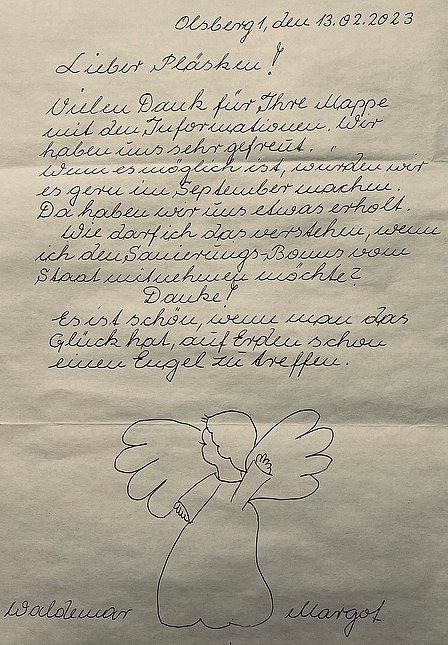 Olsberg 1, den 13.02.2023
Lieber Pläsken!
Vielen Dank für Ihre Mappe
mit den Informationen. Wir
haben uns sehr gefreut.
Wenn es möglich ist, würden wir
es gern im September machen.
Da haben wir uns etwas erholt.
Wie darf ich das verstehen, wenn
ich den Sanierungs-Bonus vom
Staat mitnehmen möchte?
Danke!
Es ist schön, wenn man das
Glück hat, auf Erden schon
einen Engel zu treffen.
Waldemar Margot